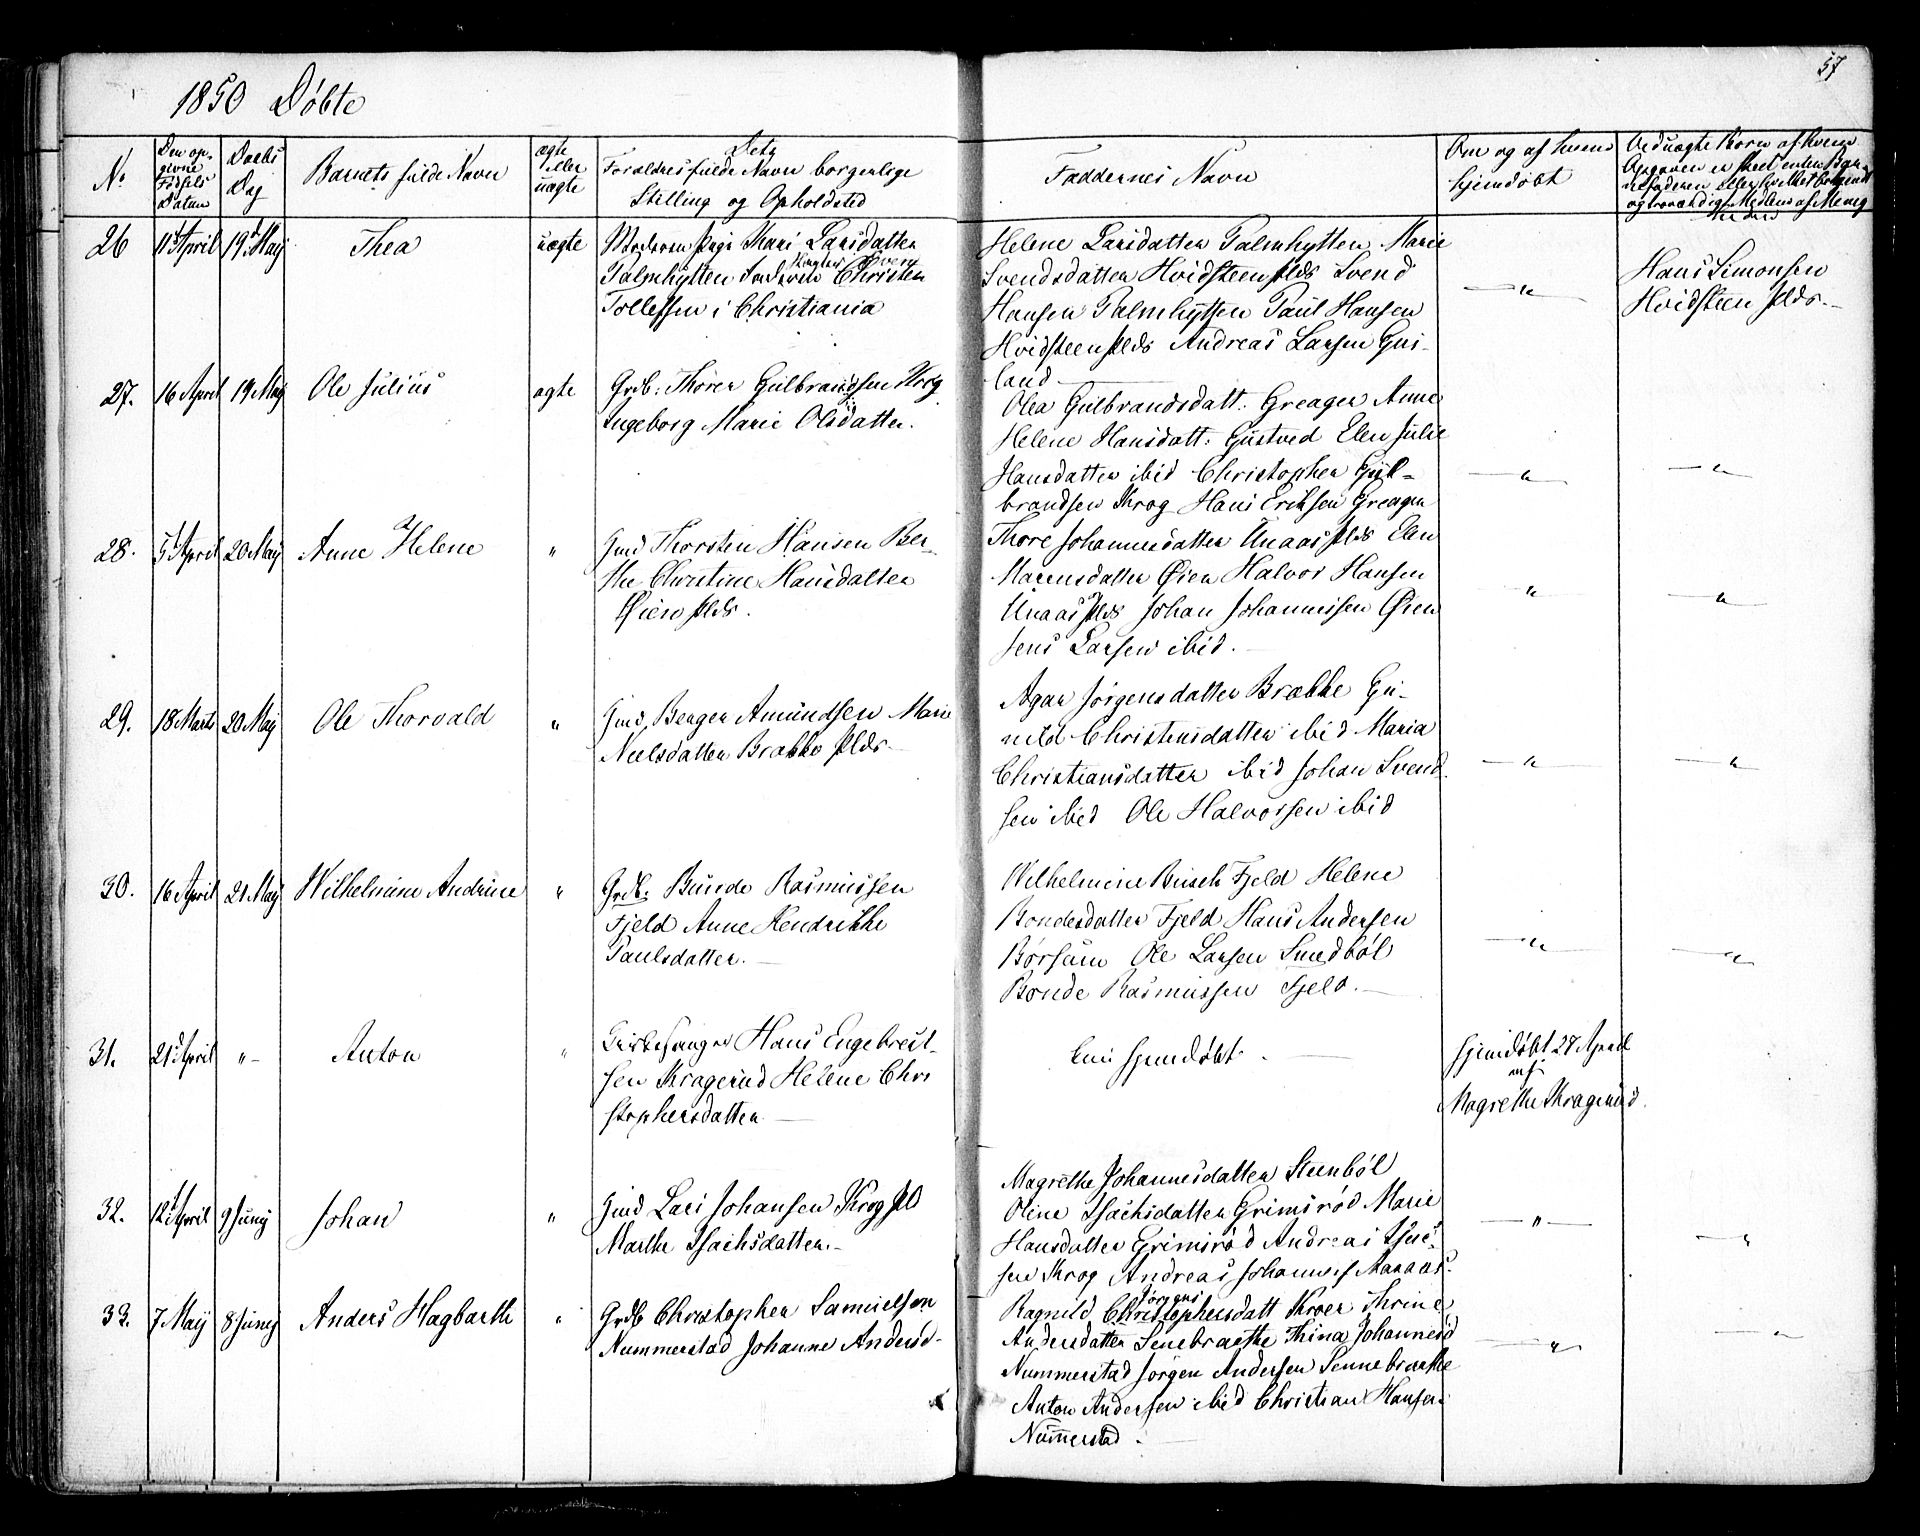 57
1850 Döbte
No
Den op-
givne
Födsels
Datum
Daabs
Dag
Barnets fulde Navn
ægte
eller
uægte
Dets
Forældres fulde Navn borgerlige
Stilling og Opholdsted
Faddernes Navn
Om og af hvem
hjemdöbt
Ved uægte Börn af hvem
Opgaven er skeet enten Bar-
nefaderen eller hvilket
26 11 April 19 May Thea uægte
Moderen Pige Mari Larsdatter
Palmhytten Faderen Christen
Tollefsen i Christiania
Helene Larsdatter Palmhytten Marie
Svendsdatter Hvidsteen Plds Svend
Hansen Palmhytten Paul Hansen
Hvidsteen Plds Andreas Larsen Gus-
land
Hans Simonsen
Hvidsteen Plds.
27. 16 April 19 May Ole Julius ægte
Grdb. Thorer Gulbrandsen Krog
Ingeborg Marie Olsdatter.
Olea Gulbrandsdatt. Greager Anne
Helene Hansdatt. Gustved Elen Julie
Hansdatter ibid Christopher Gul-
brandsen Krog Hans Eriksen Greager
28. 5 April 20 May Anne Helene "
Gmd Thorsten Hansen Ber-
the Christine Hansdatter
Øien Plds.
Thore Johannesdatter Unaas Plds Elen
Marensdatter Øien Halvor Hansen
Unaas Plds Johan Johannessen Øien
Jens Larsen ibid.
29. 18 Marts 20 May Ole Thorvald "
Gmd. Berger Amundsen Marie
Nielsdatter Brække Plds.
Agar Jörgensdatter Brække Gu-
nild Christensdatter ibid Maria
Christiansdatter ibid Johan Svend-
sen ibid Ole Halvorsen ibid
30. 16 April 21 May Wilhelmine Andrine "
Grdb. Bunde Rasmussen
Fjeld Anne Hendrikke
Paulsdatter.
Wilhelmine Busch Fjeld Helene
Bondesdatter Fjeld Hans Andersen
Börsum Ole Larsen Smedböl
Bonde Rasmussen Fjeld.
31. 21 April " Anton "
Kirkesanger Hans Engebret-
sen Kragerud Helene Chri
stophersdatter
hjemdöbt.
hjemdöbt 28 April
af
Magrethe Kragerud.
32. 12 April 9 Juny Johan "
Gmd Lars Johansen Krog Pld
Marthe Isachsdatter.
Magrethe Johannesdatter Steenböl
Oline Isachsdatter Grimsröd Marie
Hansdatter Grimsröd Andreas Isac-
sen Krog Andreas Johannes
33. 7 May 8 Juny Anders Hagbarth "
Grdb Christopher Samuelsen
Nummerstad Johanne Andersd-
Jörgens
Ragnild Christophersdatt Kroer Thrine
Andersdatter Sennebraathe Thina Johannesd
Nummerstad Jörgen Andersen Sennebraathe
Anton Andersen ibid Christian Hansen
Nummerstad.